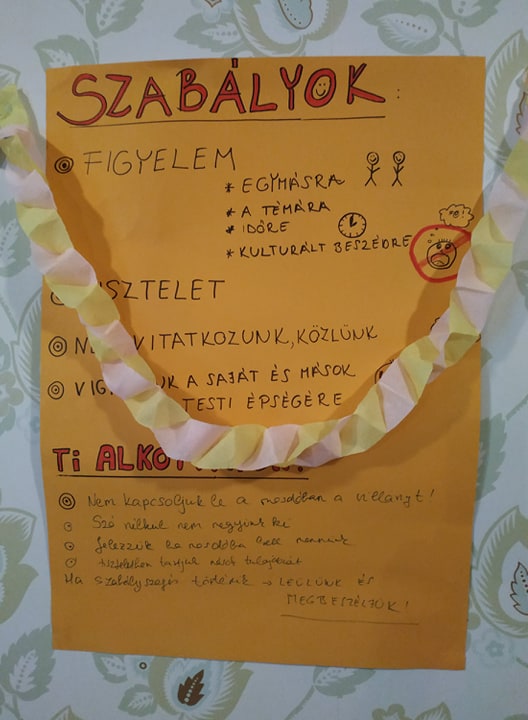 SZABÁLYOK:
FIGYELEM
* EGYMÁSRA
* A TÉMÁRA
* IDŐRE
* KULTURÁLT BESZÉDRE
SZTELET
VITATKOZUNK, KÖZLÜNK
A SAJÁT ÉS MÁSOK
TESTI ÉPSÉGÉRE
Ti ALKO
Nem kapcsoljuk le a mosdóban a villanyt!
Szó nélkül nem megyünk ki
Jelezzük ha mosdóba kell mennünk
tiszteletben tartjuk mások tulajdonát
Ha szabályszegés történik → LEÜLÜNK ÉS
MEGBESZÉLJÜK!